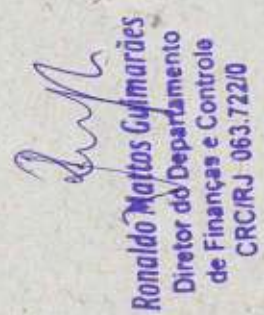 Ronaldo Mattos Guimarães
Diretor do Departamento
de Finanças e Controle
CRC/RJ 063.722/0